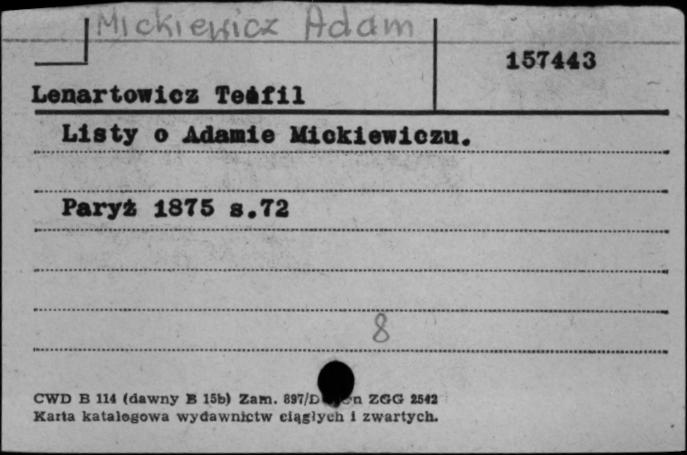 Mickiewicz Adam
157443
Lenartowicz Teofil
Listy o Adamie Mickiewiczu.
Paryż 1875 s.72
8
CWD B 114 (dawny B 15b) Zam. 897/D n ZGG 2542
Karta katalogowa wydawnictw ciągłych i zwartych.